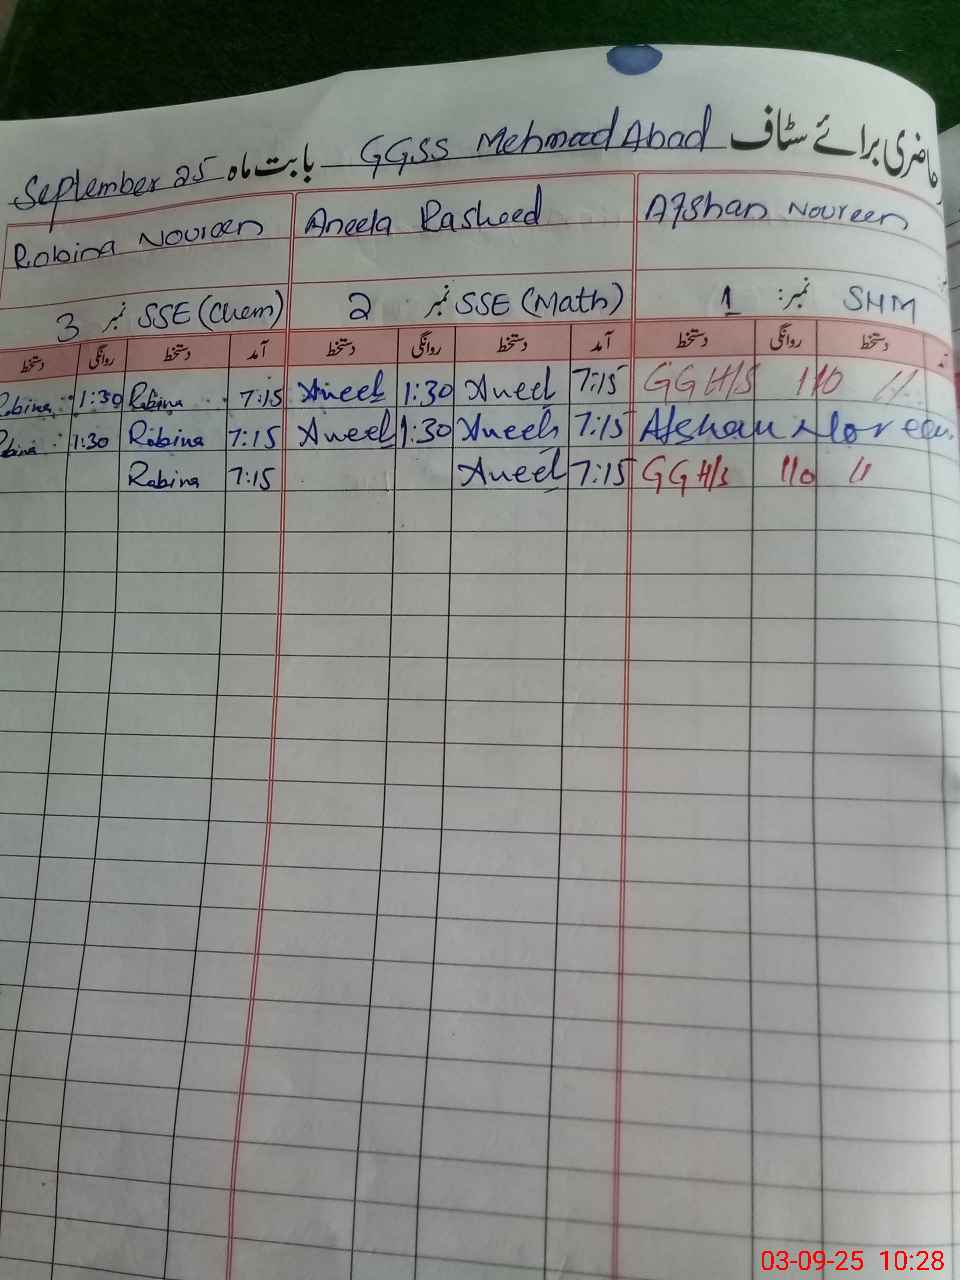 حاضری برائے سٹاف GGSS Mehmood Abad بابت ماہ September 25
Afshan Noureen Aneela Rasheed Robina Noureen
SHM نمبر: 1 SSE (Math) نمبر 2 SSE (Chem) نمبر 3
دستخط روانگی دستخط آمد دستخط روانگی دستخط آمد دستخط روانگی دستخط
GGH/S 110 // 7:15 Aneel 1:30 Aneel 7:15 Robina 1:30 Robina
Afshan Noreen 7:15 Aneela 1:30 Aneel 7:15 Robina 1:30
GGH/S 110 // 7:15 Aneel 7:15 Robina
03-09-25 10:28